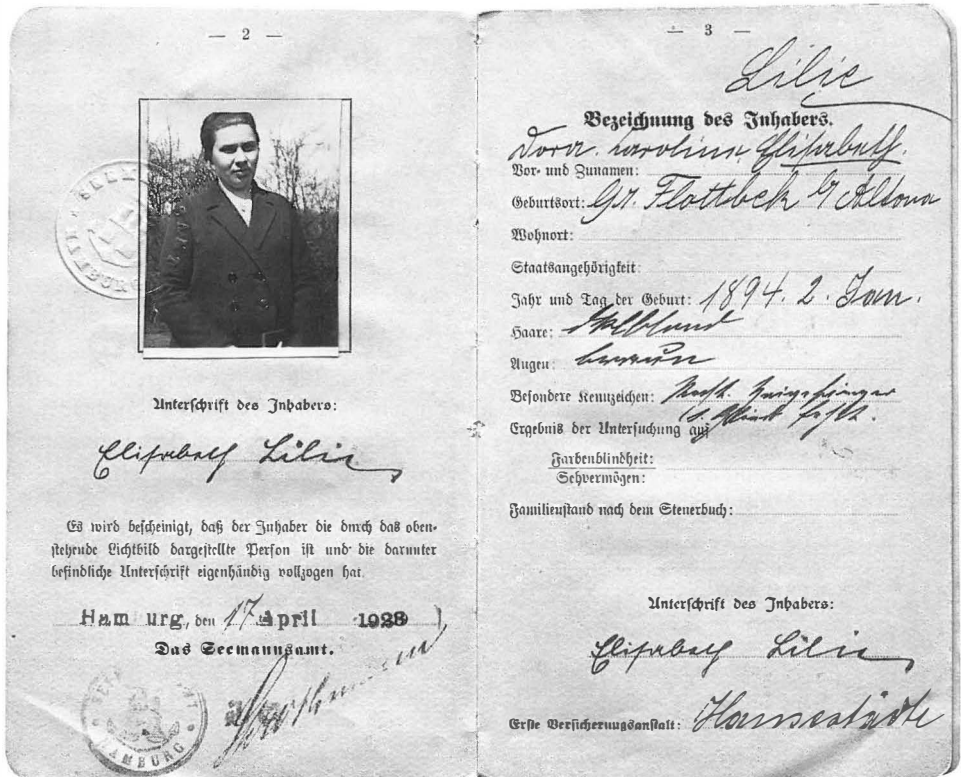 — 2 —
SEEMANNSAMT HAMBURG
Unterschrift des Inhabers:
Elisabeth Lilie
Es wird bescheinigt, daß der Inhaber die durch das oben-
stehende Lichtbild dargestellte Person ist und die darunter
befindliche Unterschrift eigenhändig vollzogen hat.
Ham urg, den 17 April 1928
Das Seemannsamt.
HAMBURG
— 3 —
Lilie
Bezeichnung des Inhabers.
Dora Caroline Elisabeth.
Vor- und Zunamen:
Geburtsort: Gr. Flottbek b/ Altona
Wohnort:
Staatsangehörigkeit:
Jahr und Tag der Geburt: 1894. 2. Jan.
Haare: dklblond
Augen: braun
Besondere Kennzeichen: Recht. Zeigefinger
1. Glied fehlt.
Ergebnis der Untersuchung auf
Farbenblindheit:
Sehvermögen:
Familienstand nach dem Steuerbuch:
Unterschrift des Inhabers:
Elisabeth Lilie
Erste Versicherungsanstalt: Hansestädte